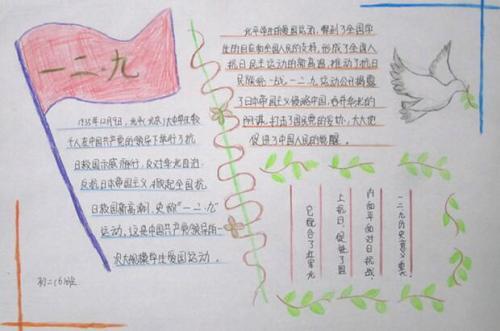 一二·九
1935年12月9日,北平(北京)大中学生数
千人在中国共产党的领导下举行了抗
日救国示威游行,反对华北自治
反抗日本帝国主义,掀起全国抗
日救国新高潮,史称“一二·九”
运动,这是中国共产党领导的一
次大规模学生爱国运动。
初二(6)班
北平学生的爱国运动,得到了全国学
生的响应和全国人民的支持,形成了全国人
抗日民主运动的新高潮,推动了抗日
民族统一战,一二·九运动公开揭露
了日本帝国主义侵略中国,吞并华北的
阴谋,打击了国民党的妥协,大大地
促进了中国人民的觉醒。
一二九历史意义重大,
内而平面对日抗战,
上抗日,促进了国
它配合了红军北